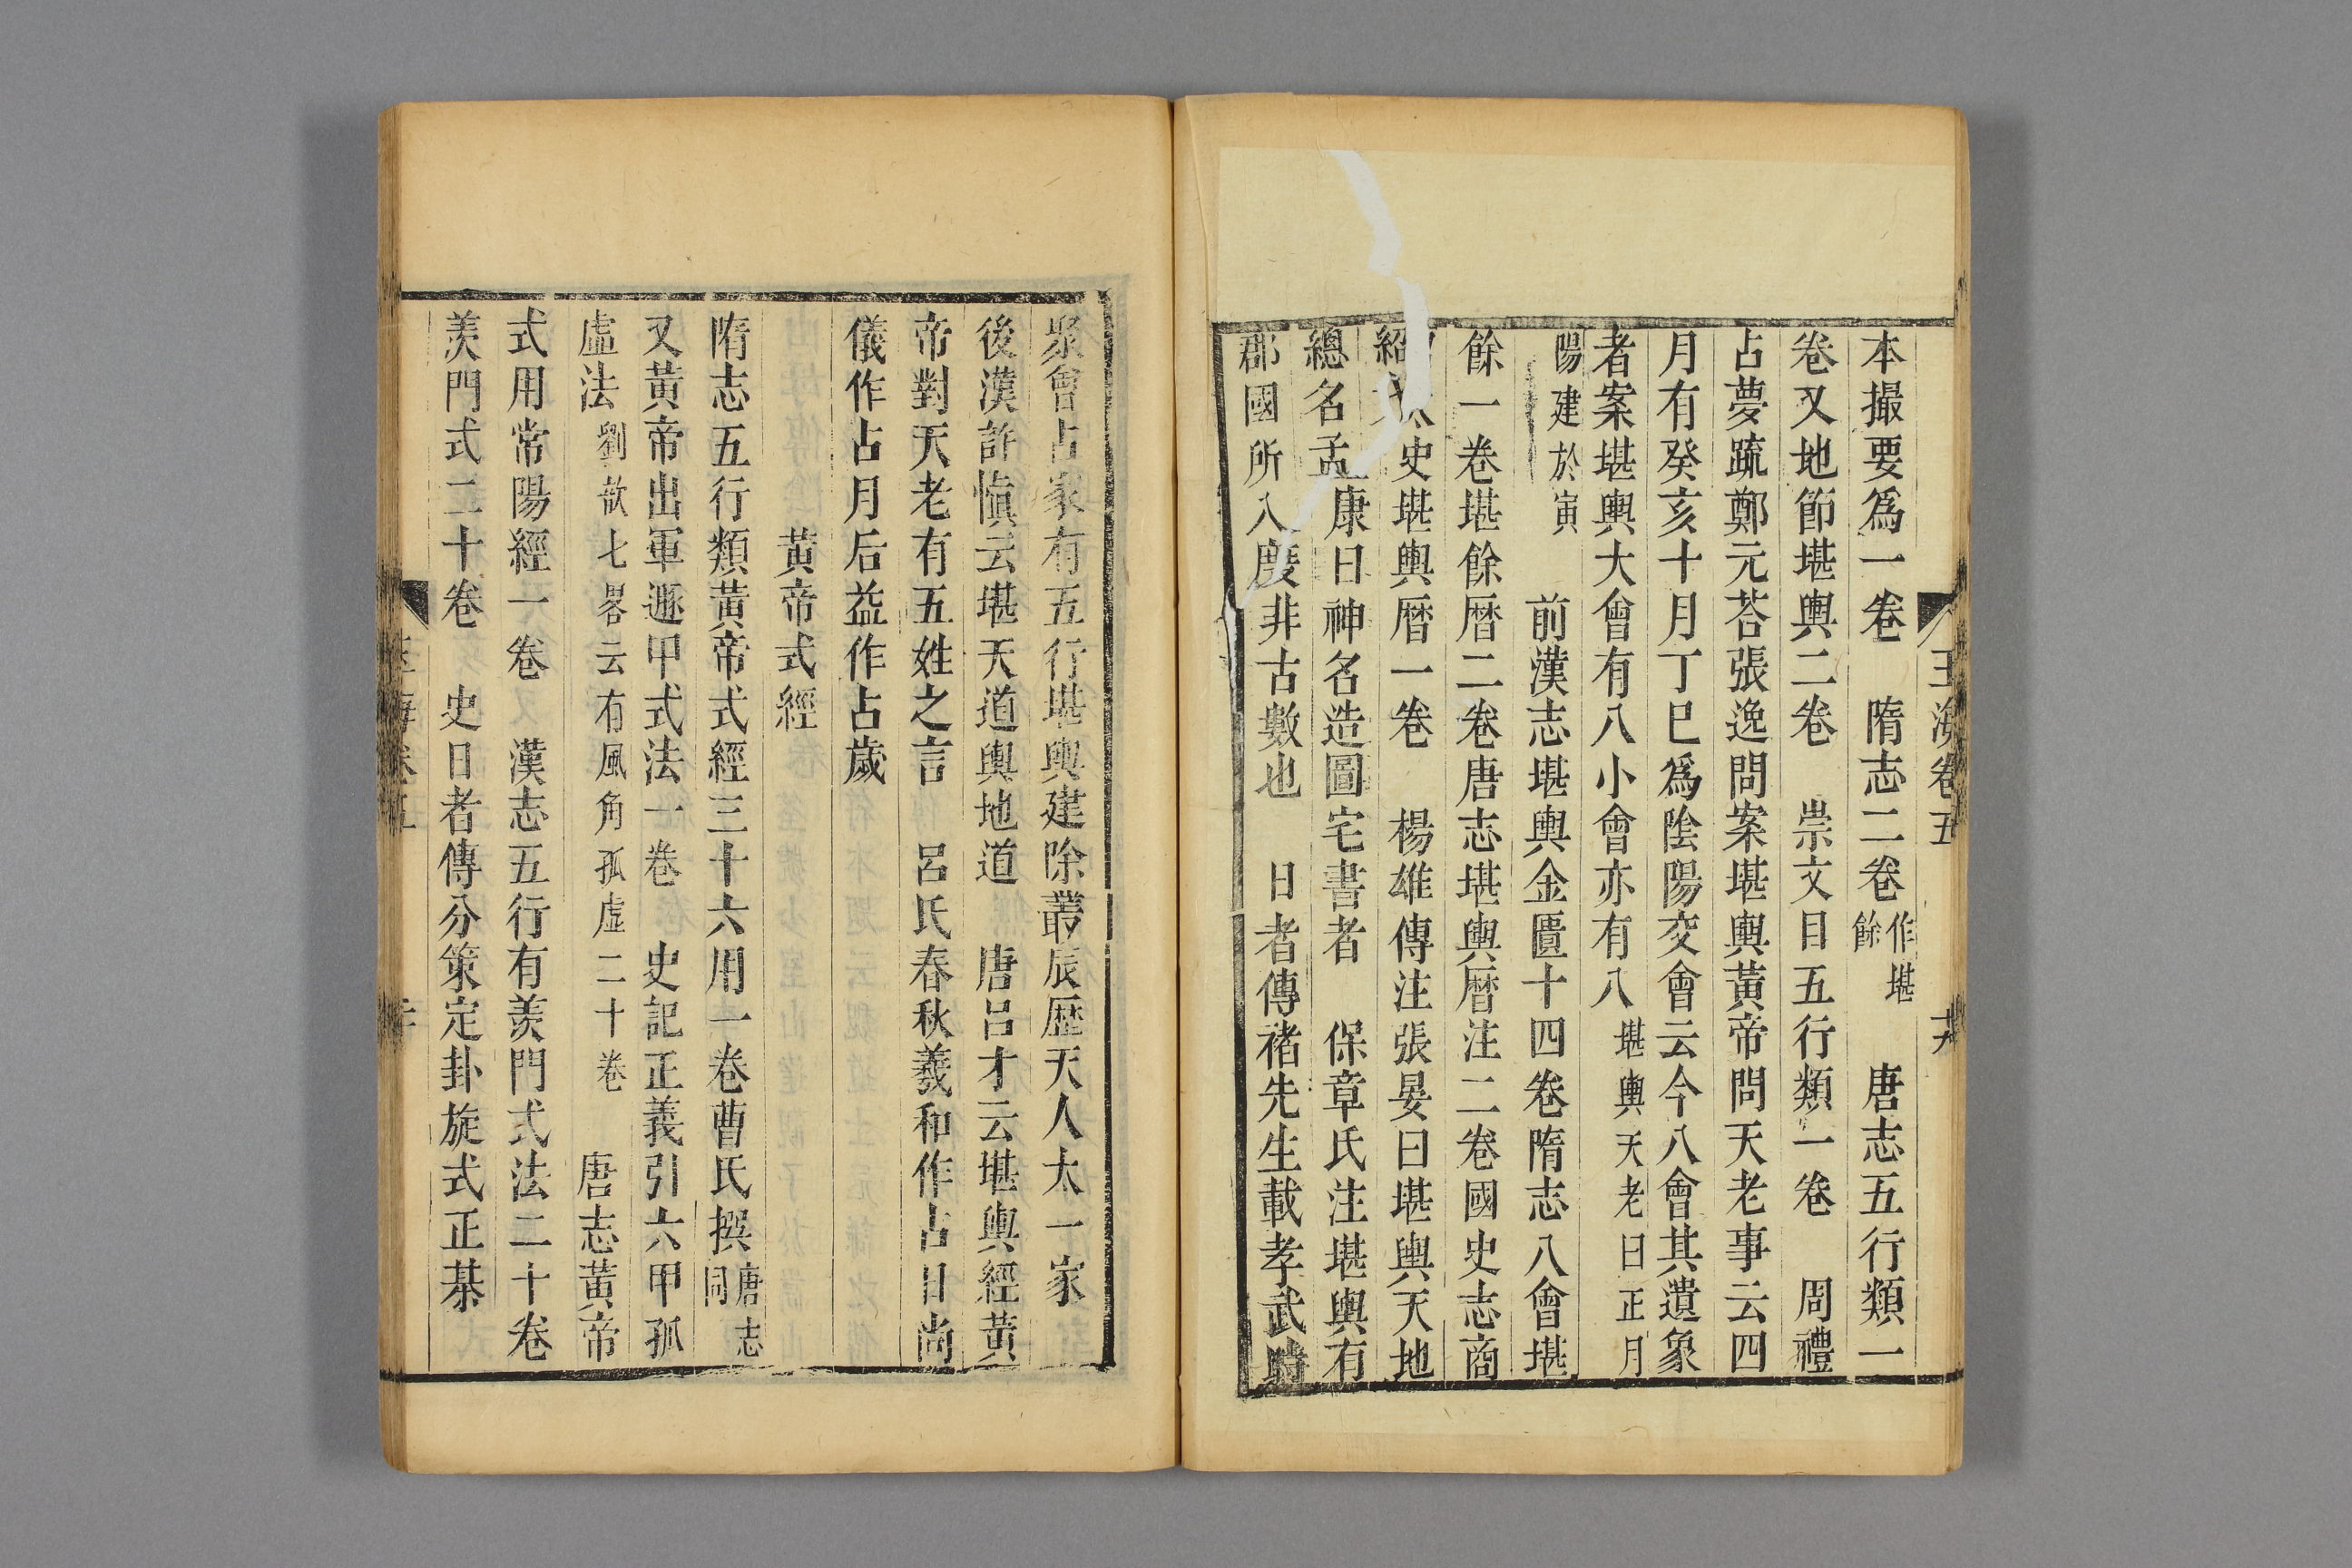 玉海卷五
十九
本撮要爲一卷　隋志二卷作堪餘　唐志五行類一
卷又地節堪輿二卷　崇文目五行類一卷　周禮
占夢疏鄭元荅張逸問案堪輿黃帝問天老事云四
月有癸亥十月丁巳爲陰陽交會云今八會其遺象
者案堪輿大會有八小會亦有八堪輿天老曰正月
陽建於寅　前漢志堪輿金匱十四卷隋志八會堪
餘一卷堪餘曆二卷唐志堪輿曆注二卷國史志商
紹太史堪輿曆一卷　楊雄傳注張晏曰堪輿天地
總名孟康曰神名造圖宅書者　保章氏注堪輿有
郡國所入度非古數也　日者傳褚先生載孝武時
聚會占家有五行堪輿建除叢辰歷天人太一家
後漢許愼云堪天道輿地道　唐呂才云堪輿經黃
帝對天老有五姓之言　呂氏春秋羲和作占日尚
儀作占月后益作占歲
黃帝式經
隋志五行類黃帝式經三十六用一卷曹氏撰唐志同
又黃帝出軍遯甲式法一卷　史記正義引六甲孤
虛法劉歆七畧云有風角孤虛二十卷　唐志黃帝
式用常陽經一卷　漢志五行有羨門式法二十卷
羨門式二十卷　史日者傳分策定卦旋式正棊